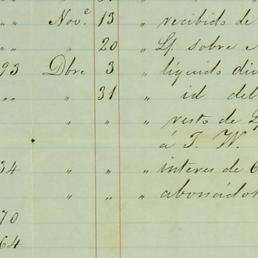 " Nov.e 13 " recibido de
" " 20 " Lf sobre
93 Dbre 3 " líquido div
" " 31 " id del
" " " resto de
á T. W.
34 " " " interes de 6
" " " abonados
70
64